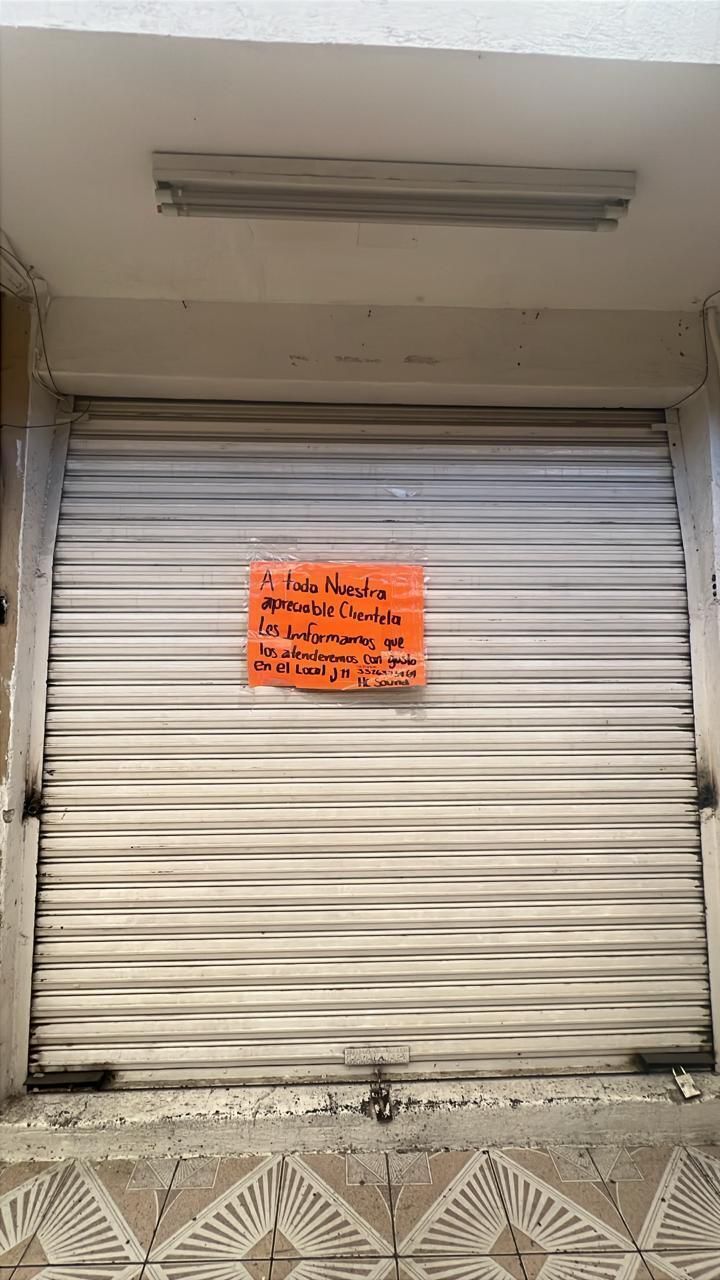 A toda Nuestra
apreciable Clientela
Les Imformamos que
los atenderemos con gusto
en el Local J 11
HC Sound